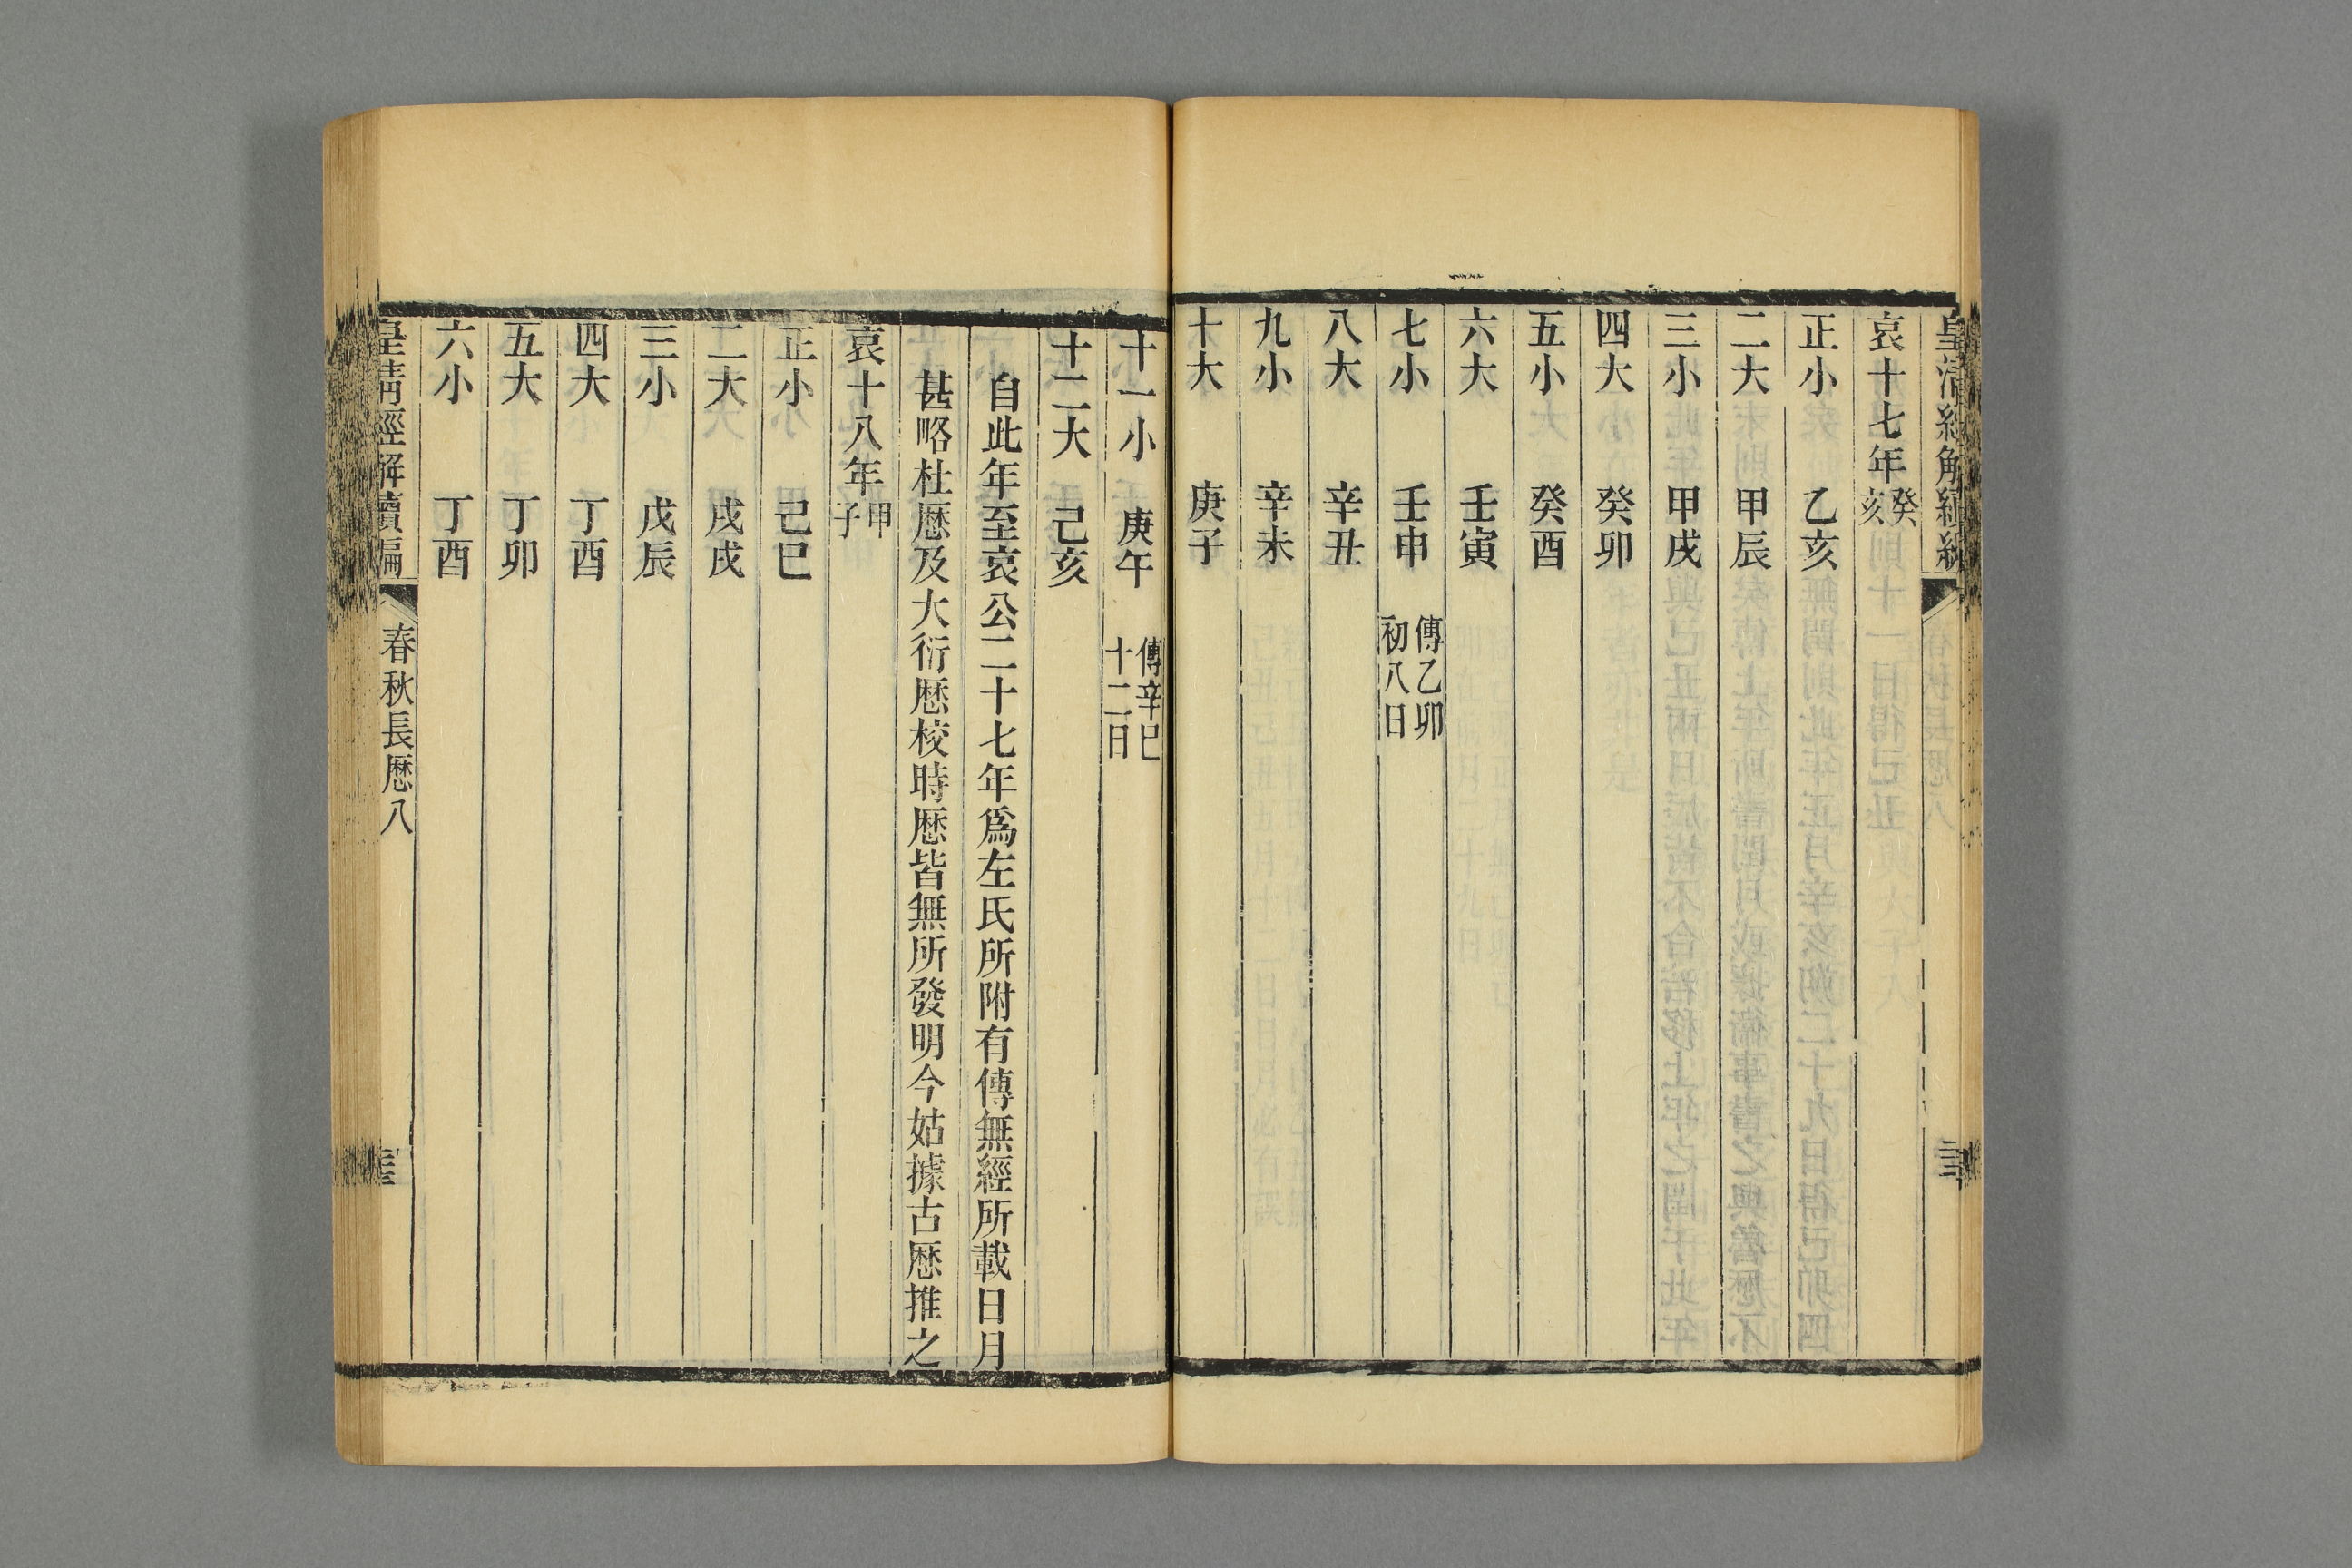 哀十七年癸亥
正小　乙亥
二大　甲辰
三小　甲戌
四大　癸卯
五小　癸酉
六大　壬寅
七小　壬申　傳乙卯
初八日
八大　辛丑
九小　辛未
十大　庚子
十一小　庚午　傳辛巳
十二日
十二大　己亥
自此年至哀公二十七年爲左氏所附有傳無經所載日月
甚略杜厯及大衍厯校時厯皆無所發明今姑據古厯推之
哀十八年甲子
正小　己巳
二大　戊戌
三小　戊辰
四大　丁酉
五大　丁卯
六小　丁酉
皇清經解續編　春秋長厯八